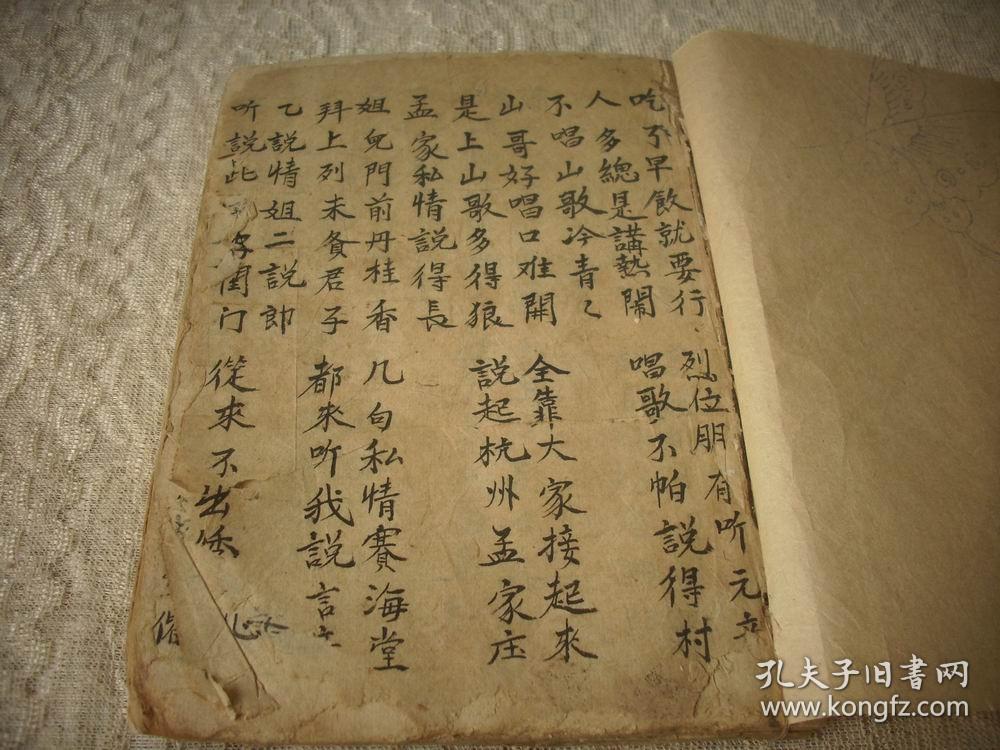 吃了早飲就要行 烈位朋有听元
人多總是講熱鬧 唱歌不怕說得村
不唱山歌冷青〻
山哥好唱口难開 全靠大家接起來
是上山歌多得狼 説起杭州孟家庄
孟家私情説得長
姐兒門前丹桂香 几句私情賽海堂
拜上列未貧君子 都来听我説言
乙説情姐二説郎
听説此 字閨门 從來不出
孔夫子旧書网
www.kongfz.com